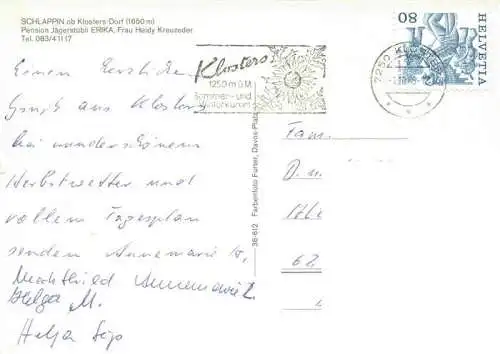 SCHLAPPIN ob Klosters-Dorf (1650 m)
Pension Jägerstübli ERIKA, Frau Heidy Kreuzeder
Tel. 083/4 11 17
Einen herzliche
Gruß aus Klosters
bei wunderschönem
Herbstwetter und
vollem Tagesplan
senden Annemarie
Mechthild Annemarie
Helga M.
Helga
Klosters
1250 m ü. M.
Sommer- und
Winterkurort
7250 KLOSTERS
HELVETIA
80
38-612 Farbenfoto Furter, Davos-Platz
Fam.
D. u.
62